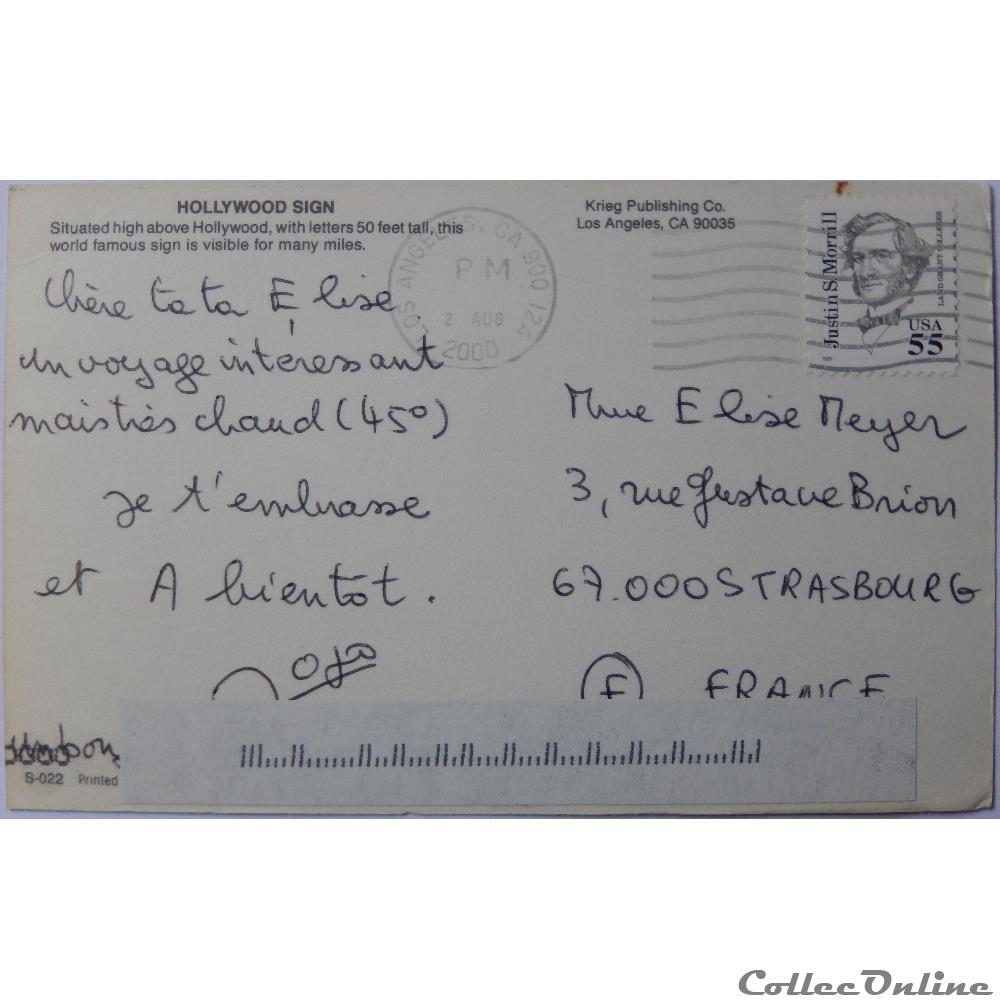 HOLLYWOOD SIGN
Situated high above Hollywood, with letters 50 feet tall, this
world famous sign is visible for many miles.
Chère tata Elise.
un voyage intéressant
mais très chaud (45°)
je t'embrasse
et A bientôt.
S-022 Printed
Krieg Publishing Co.
Los Angeles, CA 90035
LOS ANGELES, CA 900 124
PM
2 AUG
2000
Justin S. Morrill
LAND GRANT COLLEGES
USA
55
Mme Elise Meyer
3, rue Gustave Brion
67.000 STRASBOURG
F FRANCE
CollecOnline